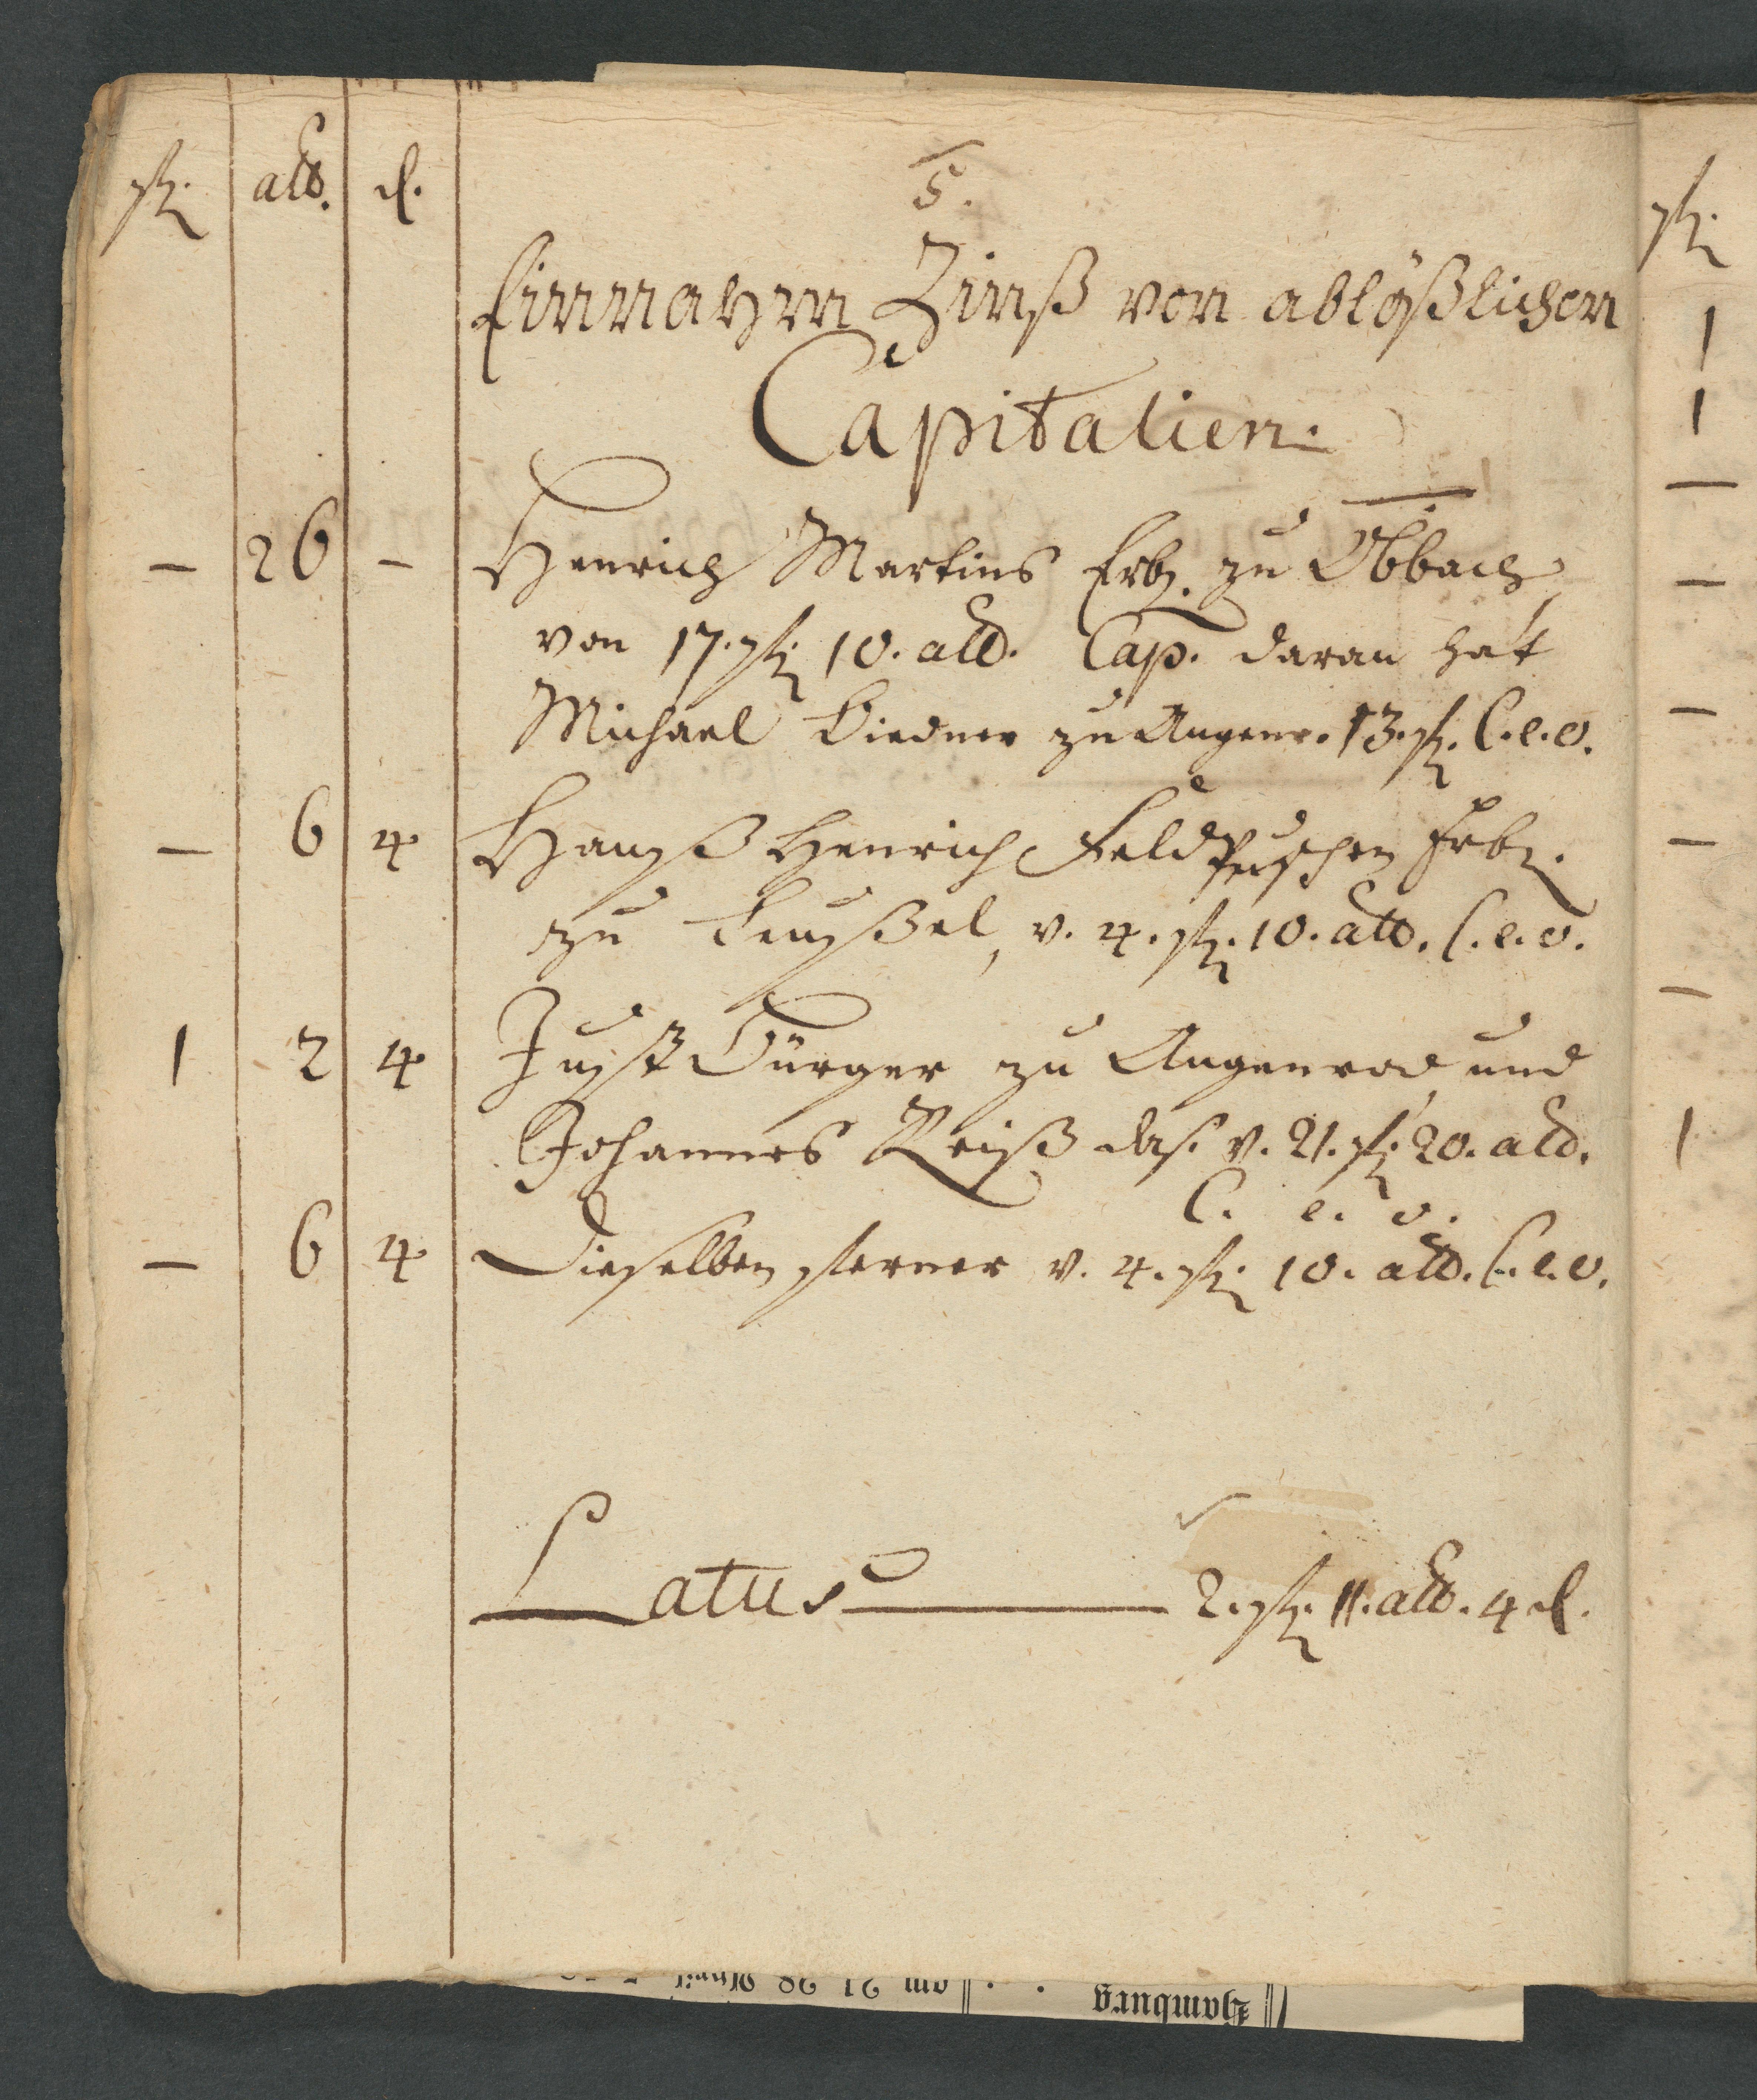 fl. alb. d.
5.
Einnahm Zinß von ablößlichen
Capitalien.
— 26 — Henrich Martins Erb. zu Obbach,
von 17. fl. 10. alb. Cap. daran hat
Michael zu Angenr. 13. fl. C. e. o.
— 6 4 Hanß Henrich Erb.
zu v. 4. fl. 10. alb. C. e. o.
1 2 4 Just zu Angenrod, und
Johannes Reiß das. v. 21. fl. 20. alb.
C. e. o.
— 6 4 Dieselben ferner v. 4. fl. 10. alb. C. e. o.
Latus — 2. fl. 11. alb. 4 d.
fl.
1
1
—
—
—
—
—
1
Hamburg . . am 21 28 April